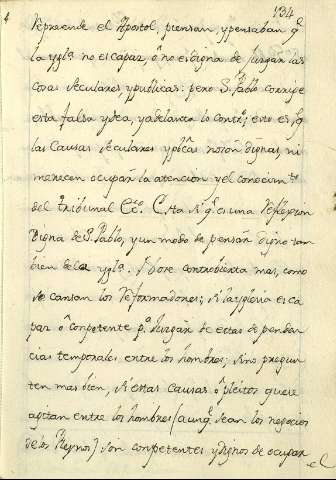 134
reprende el Apostol, piensan, y pensaban q̃
la ygla. no es capaz, ô no es digna de Juzgar las
cosas seculares, y publicas: pero S. Pablo corrije
esta falsa ydea, y adelanta lo contro.; esto es, q̃
las Causas seculares y pbcas. no son dignas, ni
merecen ocupar la atencion y el conocimto.
del tribunal Ecco. Esta si q̃ es una reflexion
digna de S. Pablo, y un modo de pensar digno tam
bien de la ygla. No se controbierta mas, como
se cansan los reformadores; si la yglesia es ca
paz ô conpetente pa. Juzgar de estas dependen
cias temporales entre los hombres; sino pregun
ten mas bien, si estas causas ô pleitos que se
agitan entre los hombres (aunq̃ sean los negocios
de los Reynos) son conpetentes y dignos de ocupar
el